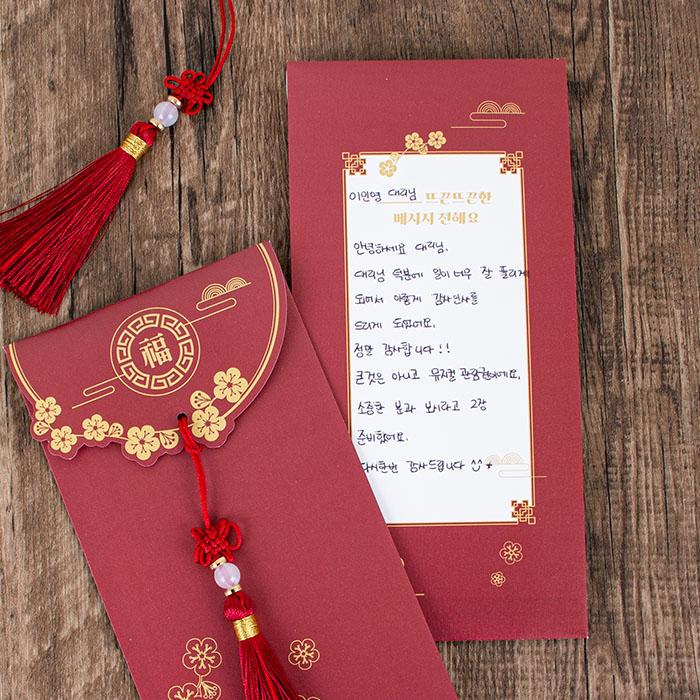 福
이민영 대리님 뜨끈뜨끈한
메시지 전해요
안녕하세요 대리님.
대리님 덕분에 일이 너무 잘 풀리게
되어서 이렇게 감사인사를
드리게 되었어요.
정말 감사합니다!!
큰것은 아니고 뮤지컬 관람권이에요.
소중한 분과 보시라고 2장
준비했어요.
다시한번 감사드립니다 ^^